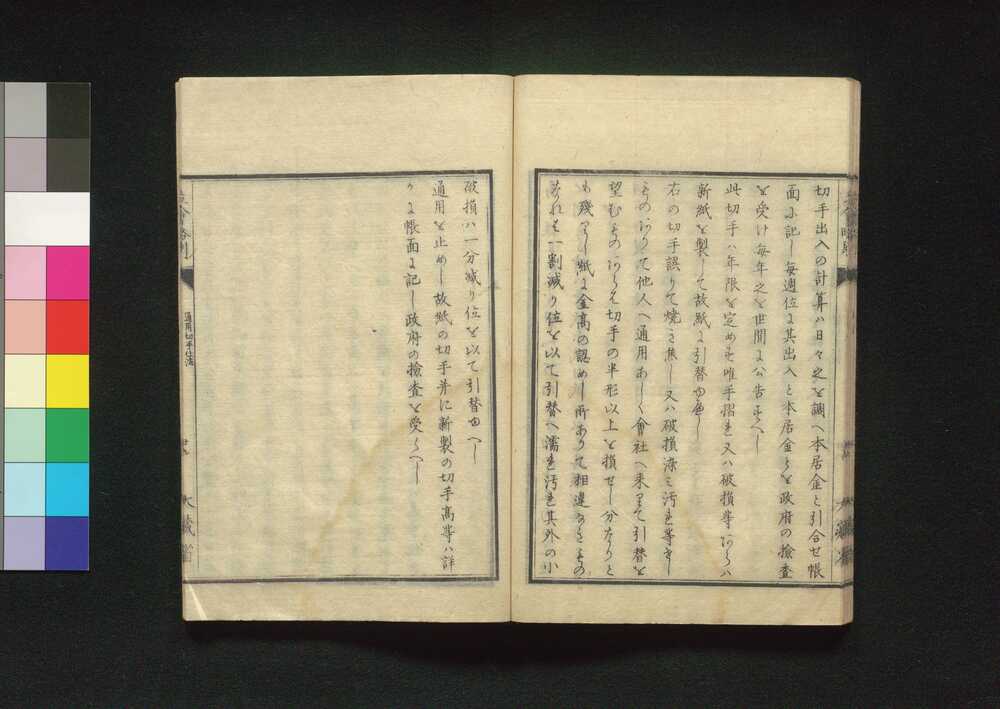 切手出入の計算ハ日々之を調へ本居金と引合せ帳
面に記し毎週位に其出入と本居金とを政府の撿査
を受け毎年之を世間に公告すへし
此切手ハ年限を定めす唯手摺れ又ハ破損等あらハ
新紙を製して故紙に引替ゆ可し
右の切手誤りて焼き焦し又ハ破損滲ミ汚れ等せし
ものありて他人へ通用あしく會社へ来りて引替を
望むものあらは切手の半形以上を損せし分なりと
も殘りし紙に金高の認めし所ありて相違なきもの
なれは一割減り位を以て引替へ濡れ汚れ其外の小
破損ハ一分減り位を以て引替ゆへし
通用を止めし故紙の切手并に新製の切手高等ハ詳
かに帳面に記し政府の撿査を受くへし
立會略則
通用切手仕法
大藏省